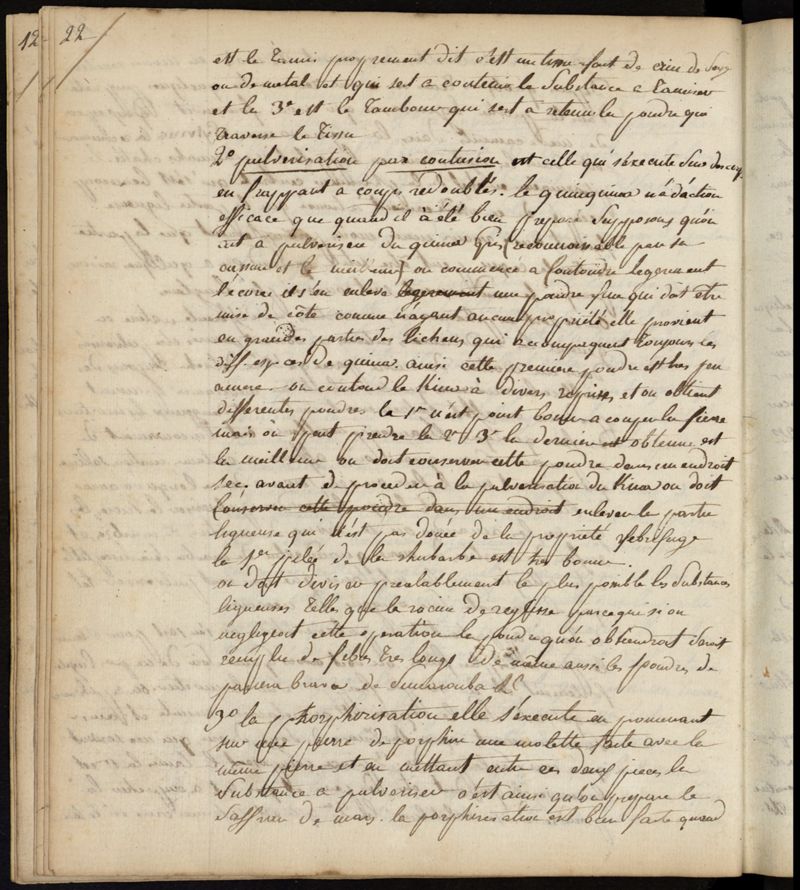 12 22
est le Tamis proprement dit c'est un tissu fait de crin de Soye
ou de metal et qui sert a contenir la Substance a Tamiser
et la 3e est le Tambour qui sert a retenir la poudre qui
traverse le Tissu
2o pulverisation par contusion est celle qui s'éxecute Sur des corps
en frappant a coups redoublés. le quinquina n'a d'action
efficace que quand il à été bien preparé Supposons qu'on
ait a pulveriser du quina Gris (reconnoissable par sa
cassure et le meilleur) on commence a Contondre legerement
l'ecorce il s'en enleve legerement une poudre fine qui doit etre
mise de côté comme n'ayant aucune propriété elle provient
en grandes parties des lichens qui accompagnent toujours les
diff. especes de quina. ainsi cette premiere poudre est tres peu
amere. on contond le Kina à divers reprises et on obtient
differentes poudres la 1re n'est point bonne a couper la fievre
mais on peut prendre la 2e 3e la derniere et obtenue est
la meilleure on doit conserver cette poudre dans un endroit
sec. avant de proceder à la pulverisation du Kina on doit
Conserver cette poudre dans un endroit enlever la partie
ligneuse qui n'est pas douée de la propriété febrifuge
la 1er pilée de la rhubarbe est tres bonne.
on doit diviser prealablement le plus possible les Substances
ligneuses Telles que la racine de reglisse parceque si on
negligeoit cette operation la poudre qu'on obtiendroit Seroit
remplie de fibres tres longs de même aussi les poudres de
pareira brava de Simarouba &c
3o la phorphirisation elle s'éxecute en promenant
sur une pierre de porphire une molette faite avec la
même pierre et en mettant entre ces deux pieces la
Substance a pulveriser c'est ainsi qu'on prepare le
Saffran de mars. la porphirisation est bien faite quand